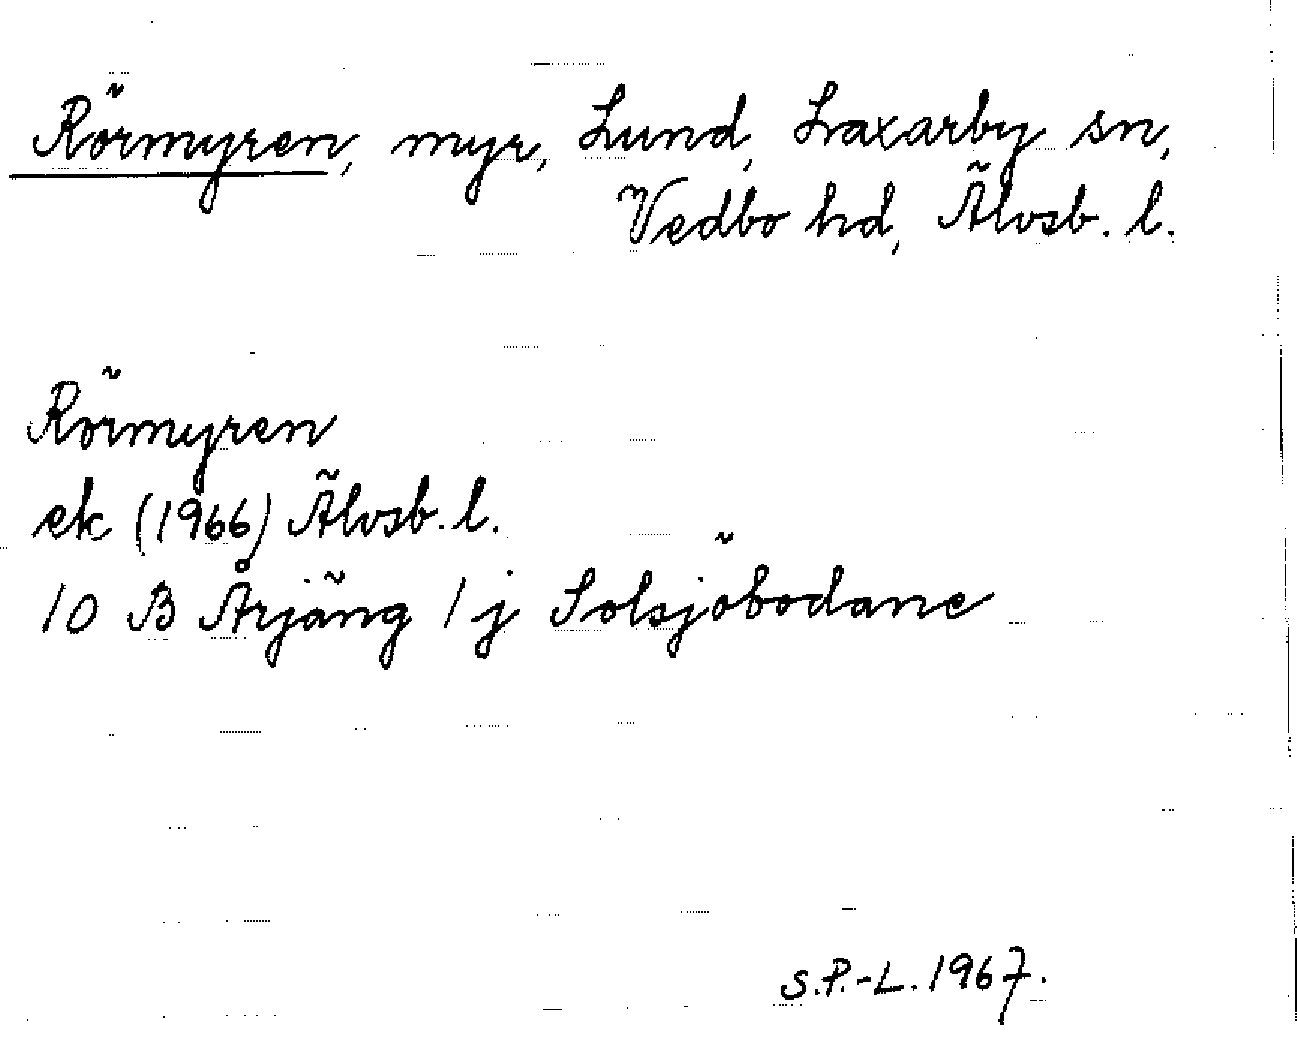 Rörmyren, myr, Lund, Laxarby sn,
Vedbo hd, Älvsb. l.
Rörmyren
ek (1966) Älvsb. l.
10 B Årjäng 1 j Solsjöbodane
S.P.-L. 1967.